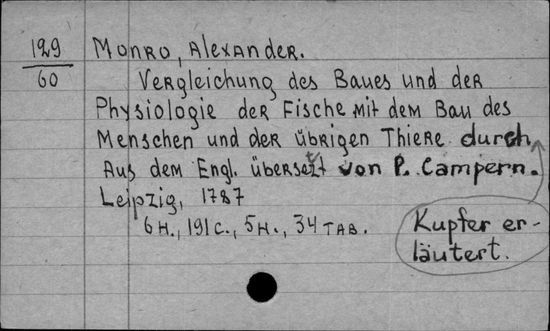 129
60
Monro, Alexander.
Vergleichung des Baues und der
Physiologie der Fische mit dem Bau des
Menschen und der übrigen Thiere durch
Aus dem Engl. übersetzt von P. Campern.
Leipzig, 1787
6 H., 191 C., 5 H., 34 TAB.
Kupfer er-
läutert.